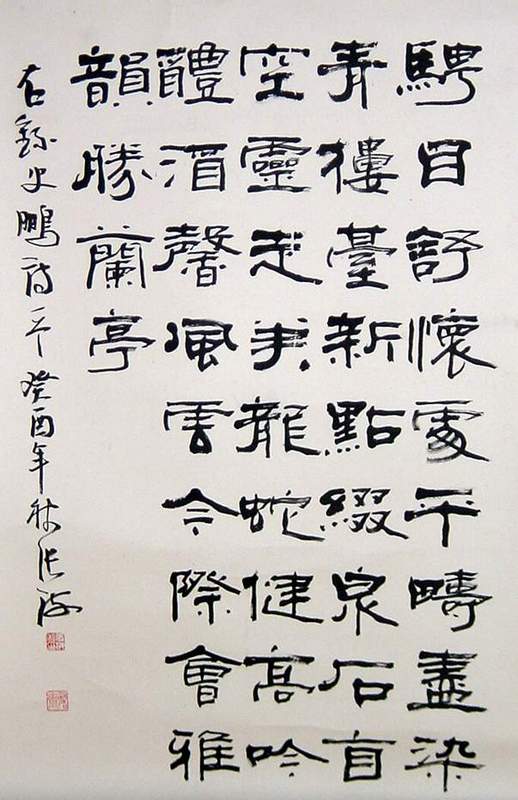 騁目舒懷處平疇盡染
青樓臺新點綴泉石自
空靈走筆龍蛇健高吟
醴酒馨風雲今際會雅
韻勝蘭亭
右錄史鵬詩一首 癸酉年秋張海